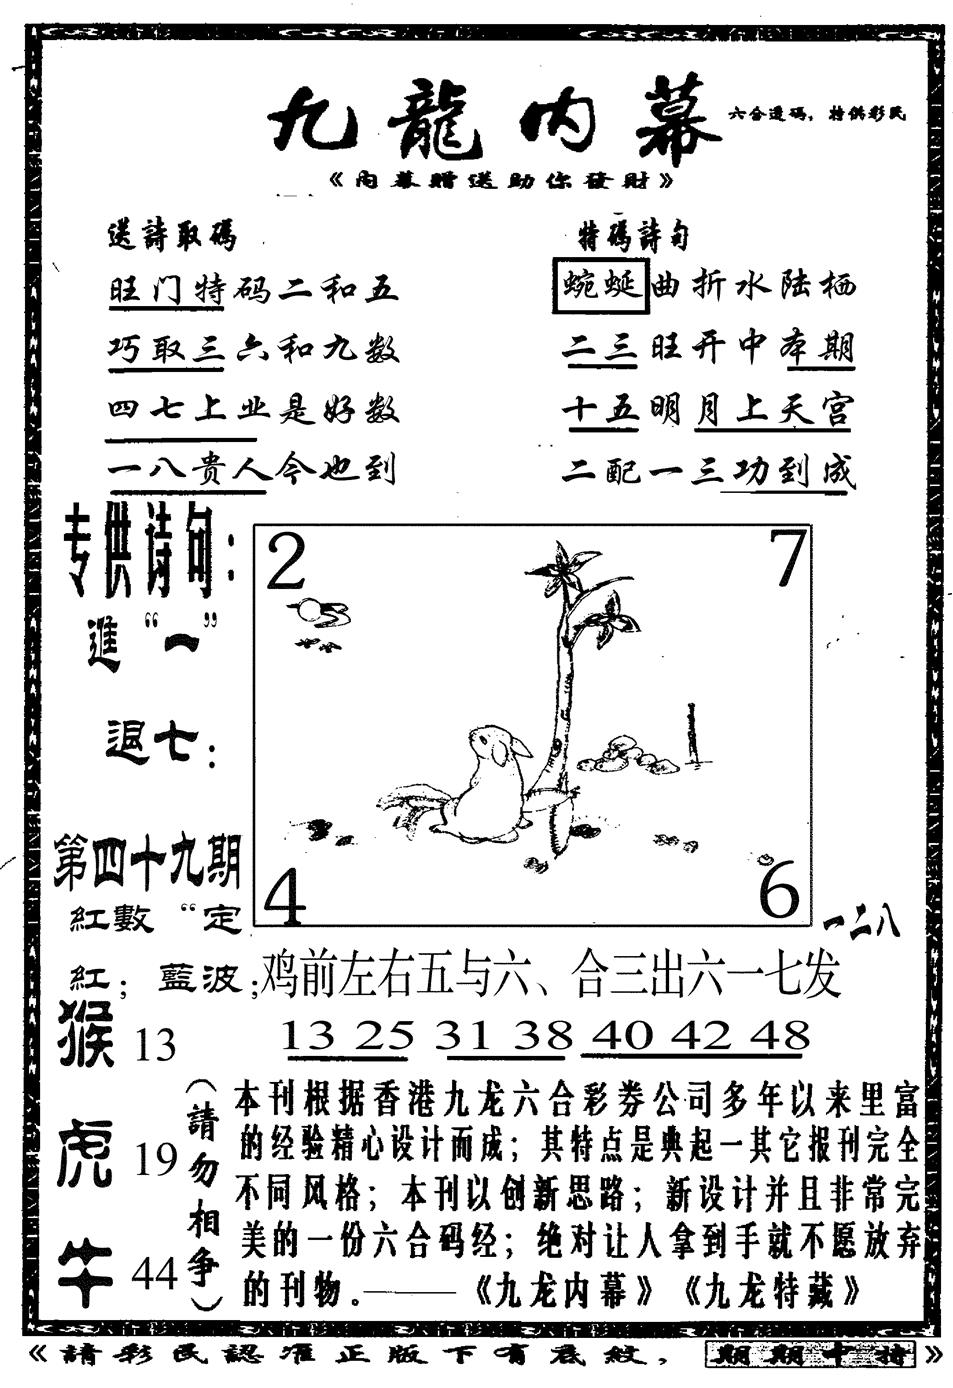 九龍内幕
六合透码，特供彩民
《内幕贈送助你發財》
送詩取碼
旺门特码二和五
巧取三六和九数
四七上业是好数
一八贵人今也到
特碼詩句
蜿蜒曲折水陆栖
二三旺开中本期
十五明月上天宫
二配一三功到成
专供诗句：
進“一”
退七：
第四十九期
紅數“定
紅；藍波；
2
7
4
6
一二八
鸡前左右五与六、合三出六一七发
13 25 31 38 40 42 48
猴 13
虎 19
牛 44
（請勿相争）
本刊根据香港九龙六合彩券公司多年以来里富
的经验精心设计而成；其特点是典起一其它报刊完全
不同风格；本刊以创新思路；新设计并且非常完
美的一份六合码经；绝对让人拿到手就不愿放弃
的刊物。——《九龙内幕》《九龙特藏》
《請彩民認准正版下有底紋，期期中特》